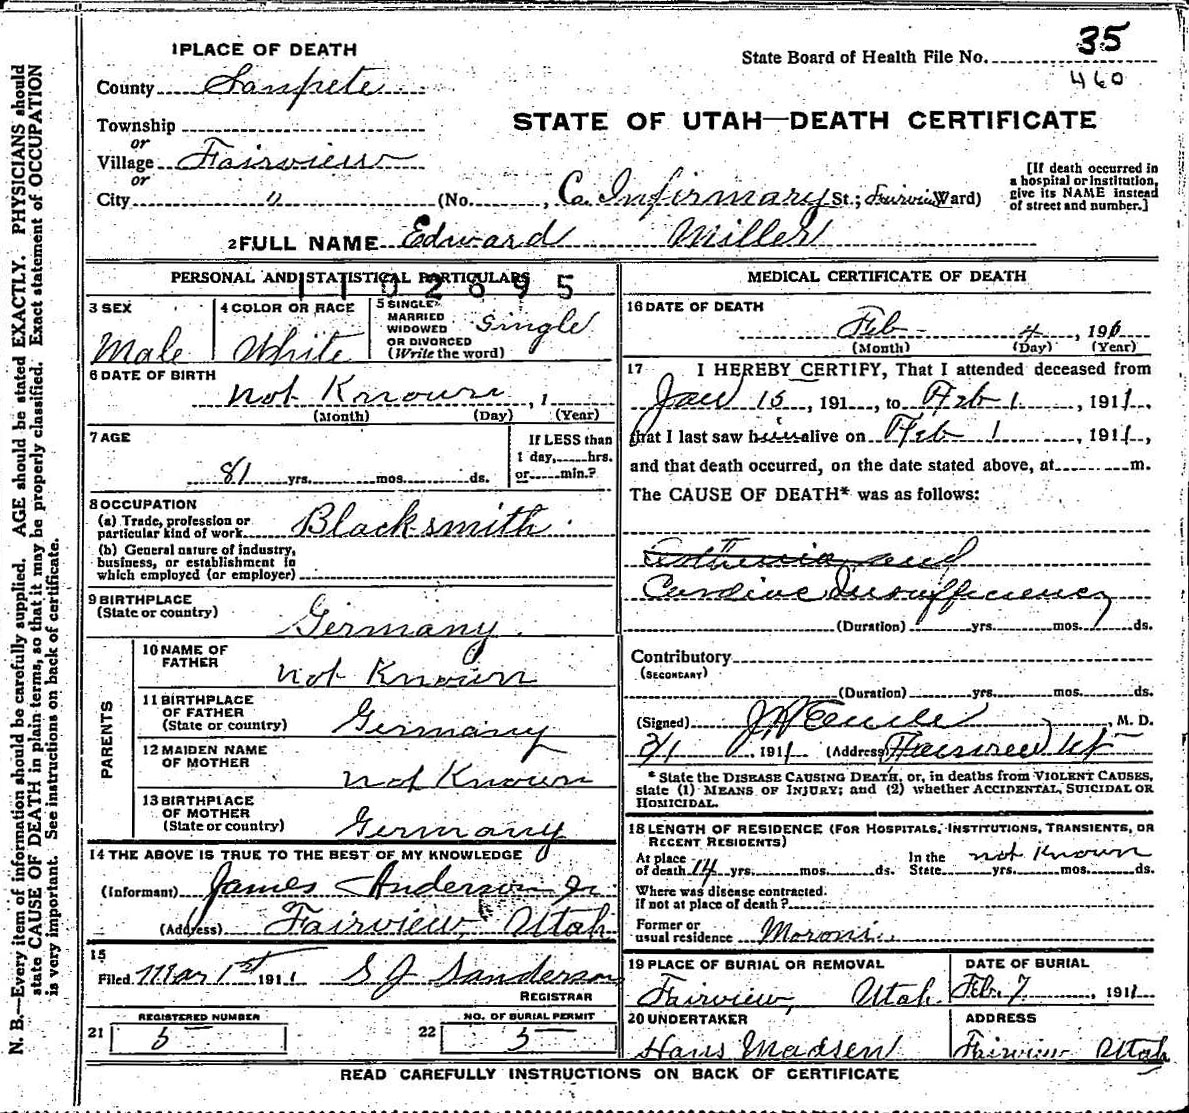 N. B.—Every item of information should be carefully supplied. AGE should be stated EXACTLY. PHYSICIANS should
state CAUSE OF DEATH in plain terms, so that it may be properly classified. Exact statement of OCCUPATION
is very important. See instructions on back of certificate.
1 PLACE OF DEATH
State Board of Health File No. 35
460
County Sanpete
STATE OF UTAH—DEATH CERTIFICATE
Township
or
Village Fairview
or
City "
(No. , Co. Infirmary St.; Fairview Ward)
[If death occurred in
a hospital or institution,
give its NAME instead
of street and number.]
2 FULL NAME Edward Miller
PERSONAL AND STATISTICAL PARTICULARS
1102695
3 SEX
Male
4 COLOR OR RACE
White
5 SINGLE
MARRIED
WIDOWED
OR DIVORCED
(Write the word)
Single
6 DATE OF BIRTH
not Known , 1
(Month) (Day) (Year)
7 AGE
81 yrs. mos. ds.
If LESS than
1 day, hrs.
or min.?
8 OCCUPATION
(a) Trade, profession or
particular kind of work Blacksmith
(b) General nature of industry,
business, or establishment in
which employed (or employer)
9 BIRTHPLACE
(State or country)
Germany
PARENTS
10 NAME OF
FATHER
not Known
11 BIRTHPLACE
OF FATHER
(State or country)
Germany
12 MAIDEN NAME
OF MOTHER
not Known
13 BIRTHPLACE
OF MOTHER
(State or country)
Germany
14 THE ABOVE IS TRUE TO THE BEST OF MY KNOWLEDGE
(Informant) James Anderson Jr
(Address) Fairview, Utah
15
Filed Mar 1st 1911 S J Sanderson
REGISTRAR
REGISTERED NUMBER
21 5
NO. OF BURIAL PERMIT
22 5
MEDICAL CERTIFICATE OF DEATH
16 DATE OF DEATH
Feb 4 , 191
(Month) (Day) (Year)
17 I HEREBY CERTIFY, That I attended deceased from
Jan 15 , 191 , to Feb 1 , 1911,
that I last saw him alive on Feb 1 , 1911,
and that death occurred, on the date stated above, at m.
The CAUSE OF DEATH* was as follows:
Asthenia and
Cardiac Insufficiency
(Duration) yrs. mos. ds.
Contributory
(SECONDARY)
(Duration) yrs. mos. ds.
(Signed) , M. D.
3/1 1911 (Address) Fairview Ut
* State the DISEASE CAUSING DEATH, or, in deaths from VIOLENT CAUSES,
state (1) MEANS OF INJURY; and (2) whether ACCIDENTAL, SUICIDAL OR
HOMICIDAL.
18 LENGTH OF RESIDENCE (FOR HOSPITALS, INSTITUTIONS, TRANSIENTS, OR
RECENT RESIDENTS)
At place
of death 14 yrs. mos. ds.
In the
State yrs. mos. ds.
not Known
Where was disease contracted.
if not at place of death?
Former or
usual residence Moroni
19 PLACE OF BURIAL OR REMOVAL
Fairview, Utah
DATE OF BURIAL
Feb. 7 , 1911
20 UNDERTAKER
Hans Madsen
ADDRESS
Fairview Utah
READ CAREFULLY INSTRUCTIONS ON BACK OF CERTIFICATE